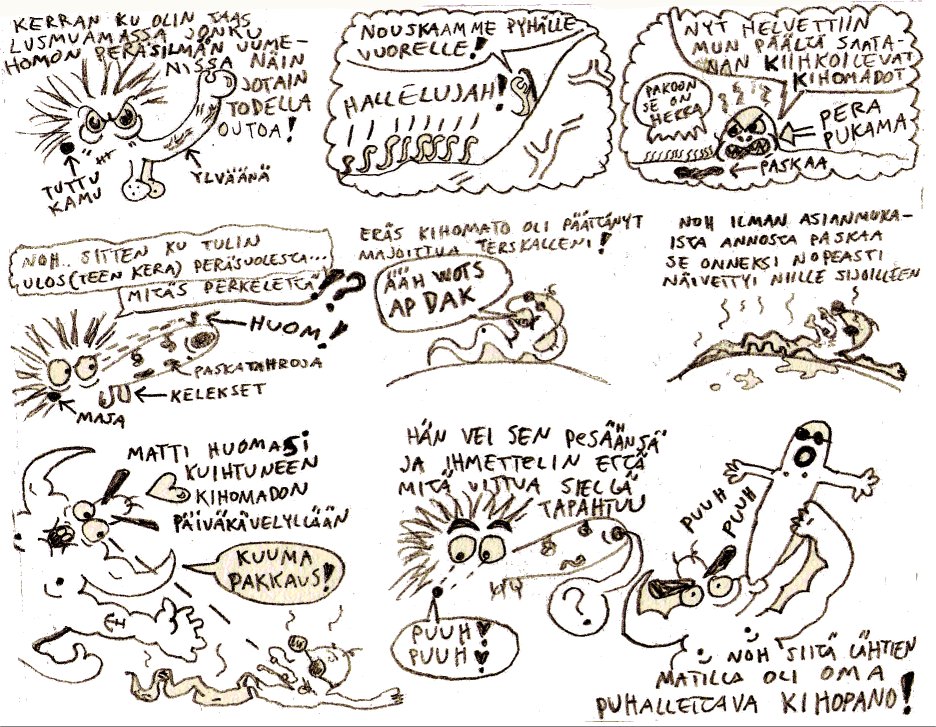 KERRAN KU OLIN TAAS
LUSMUAMASSA JONKU
HOMON PERÄSILMÄN UUME-
NISSA NÄIN
JOTAIN
TODELLA
OUTOA!
TUTTU
KAMU
YLVÄÄNÄ
NOUSKAAMME PYHÄLLE
VUORELLE!
HALLELUJAH!
NYT HELVETTIIN
MUN PÄÄLTÄ SAATA-
NAN KIIHKOILEVAT
KIHOMADOT
PAKOON
SE ON
HERRA
PERA
PUKAMA
PASKAA
NOH.. SITTEN KU TULIN
ULOS (TEEN KERA) PERÄSUOLESTA...
MITÄS PERKELETTÄ!??
HUOM!
PASKATAHROJA
KELEKSET
MAJA
ERÄS KIHOMATO OLI PÄÄTTÄNYT
MAJOITTUA TERSKALLENI!
ÄÄH WOTS
AP DAK
NOH ILMAN ASIANMUKA-
ISTA ANNOSTA PASKAA
SE ONNEKSI NOPEASTI
NÄIVETTYI NIILLE SIJOILLEEN
MATTI HUOMASI
KUIHTUNEEN
KIHOMADON
PÄIVÄKÄVELYLLÄÄN
KUUMA
PAKKAUS!
HÄN VEI SEN PESÄÄNSÄ
JA IHMETTELIN ETTÄ
MITÄ VITTUA SIELLÄ
TAPAHTUU
?
PUUH!
PUUH!
PUUH
PUUH
NOH SIITÄ LÄHTIEN
MATILLA OLI OMA
PUHALLETTAVA KIHOPANO!